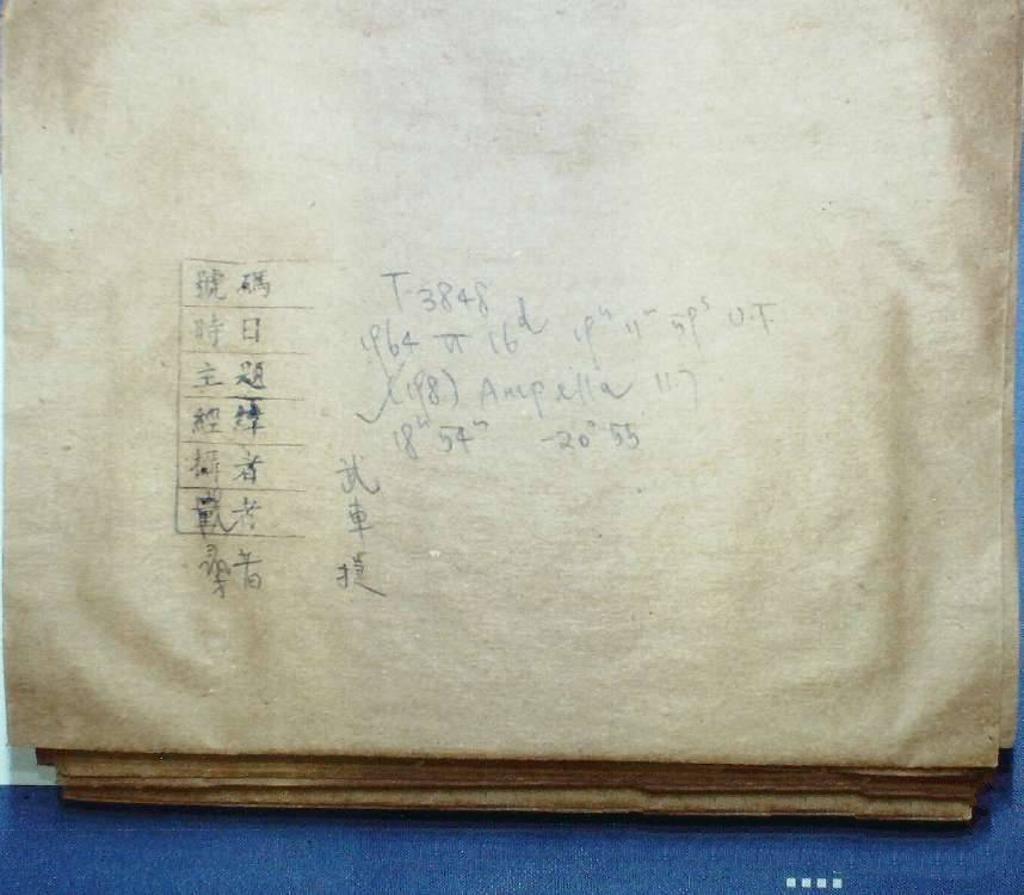 號碼 T-3848
時日 1964 VI 16d 19h 11m 59s U.T.
主題 (198) Ampella 117
經緯 18h 54m -20° 55
攝者 武
戡者 車
尋者